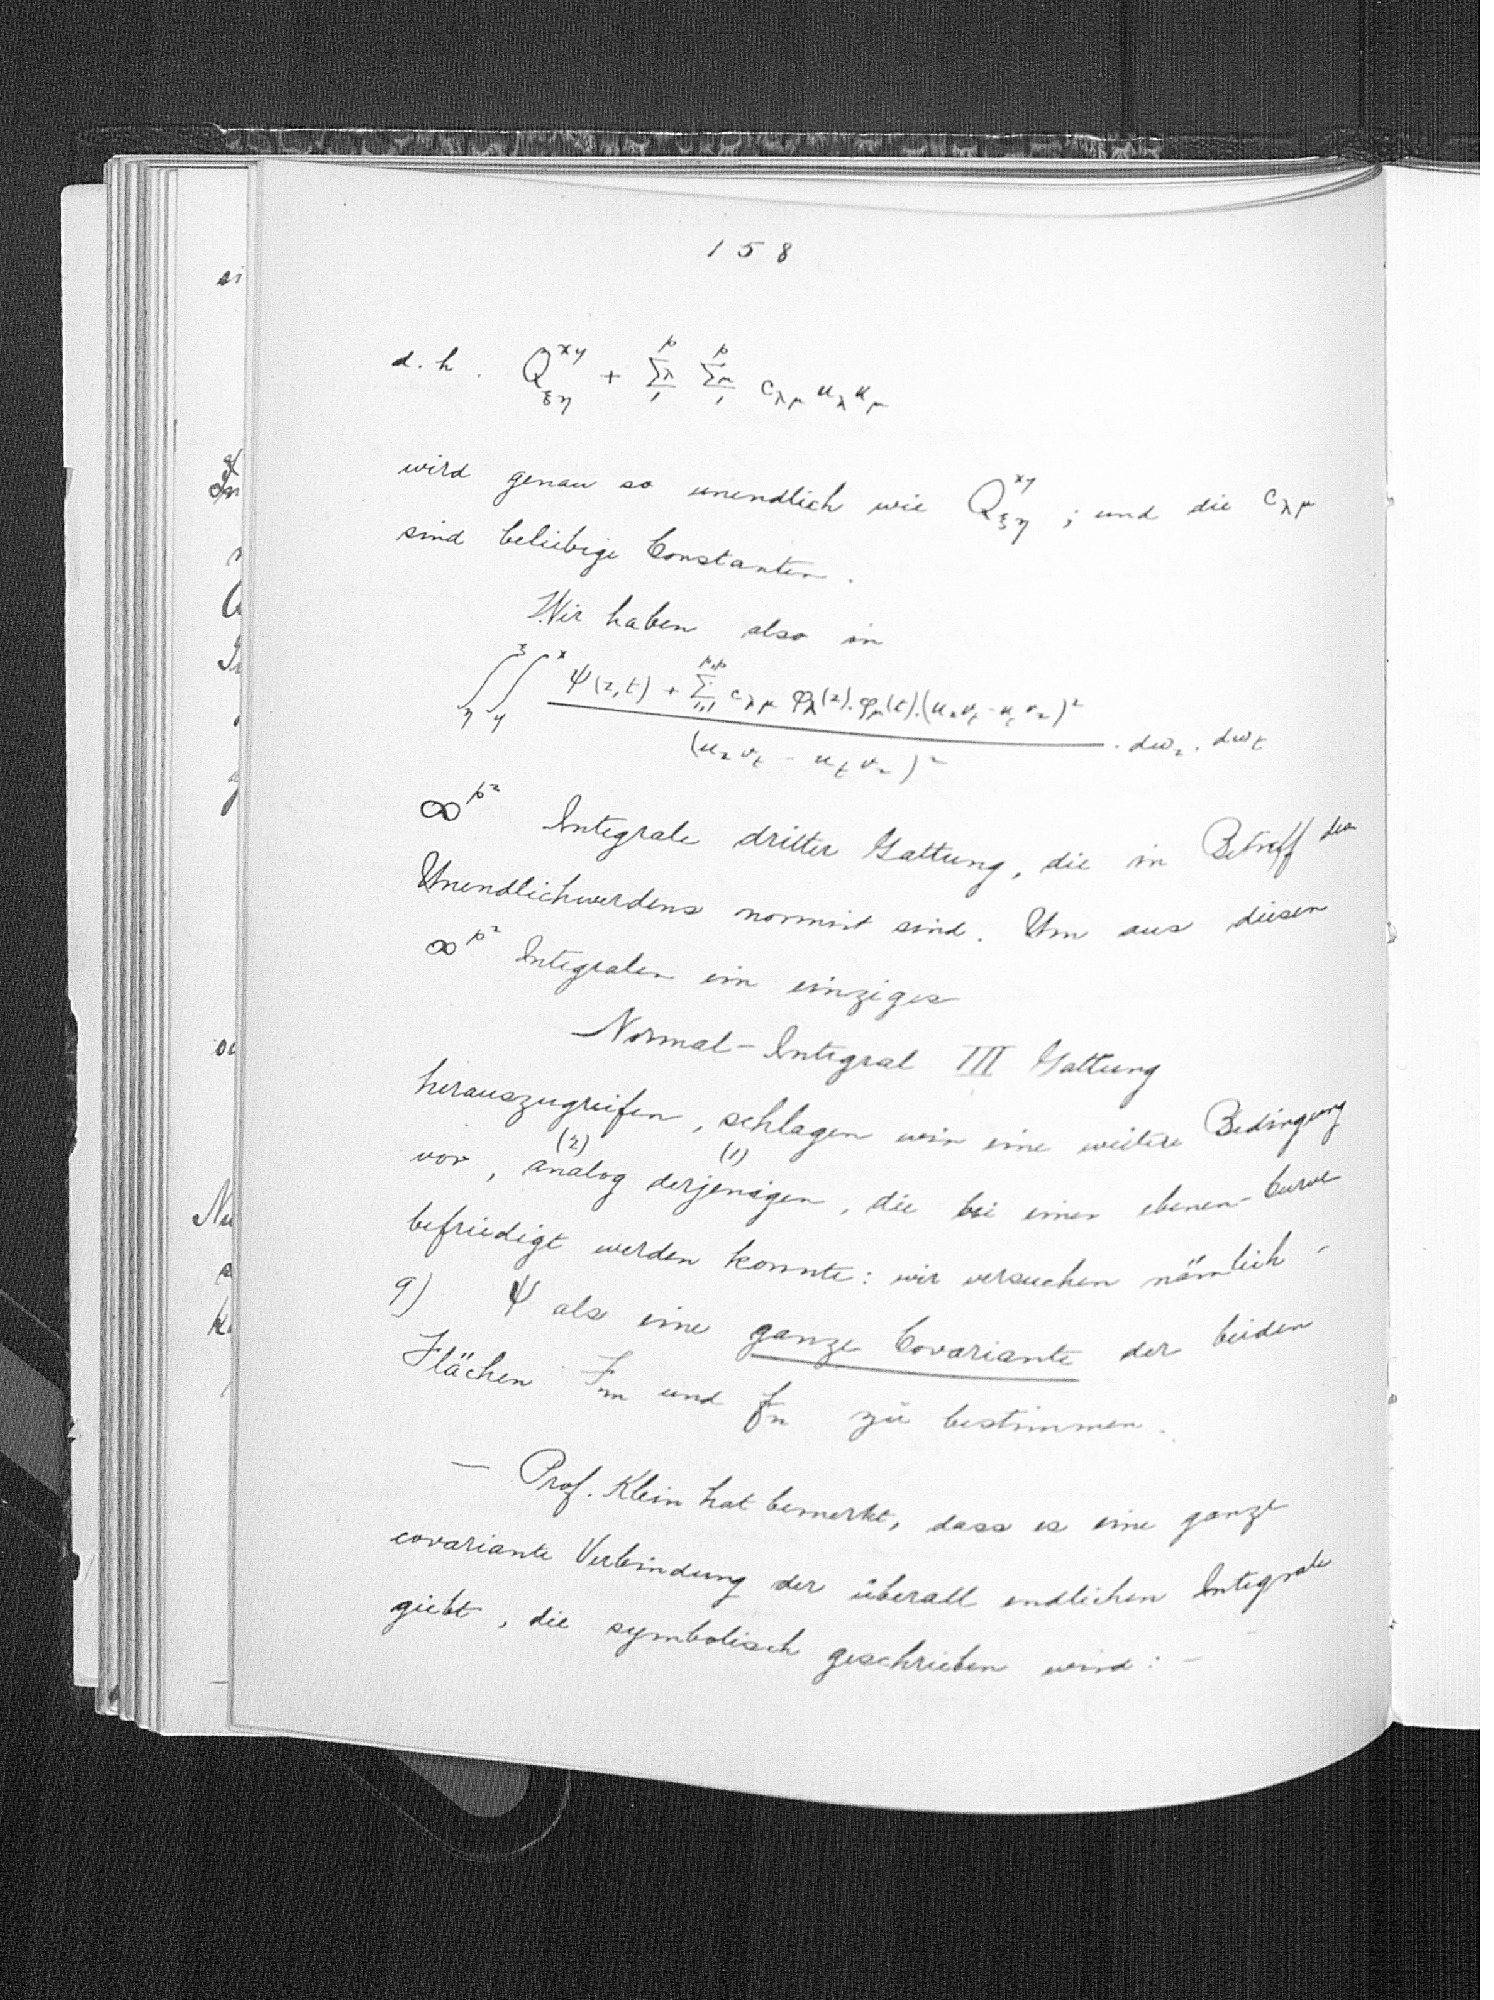 158
d. h. $Q_{\xi\eta}^{xy} + \sum_1^p{}_\lambda \sum_1^p{}_\mu c_{\lambda\mu} u_\lambda u_\mu$
wird genau so unendlich wie $Q_{\xi\eta}^{xy}$ ; und die $c_{\lambda\mu}$
sind beliebige Constanten.
Wir haben also in
$\int_\eta^\xi \int_y^x \frac{\psi(z,t) + \sum_{1,1}^{p,p} c_{\lambda\mu} \varphi_\lambda(z).\varphi_\mu(t).(u_z v_t - u_t v_z)^2}{(u_z v_t - u_t v_z)^2} . dw_z . dw_t$
$\infty^{p^2}$ Integrale dritter Gattung, die in Betreff des
Unendlichwerdens normirt sind. Um aus diesen
$\infty^{p^2}$ Integralen ein einziges
Normal-Integral III Gattung
herauszugreifen, schlagen wir eine weitere Bedingung
(2) (1)
vor, analog derjenigen, die bei einer ebenen-Curve
befriedigt werden konnte: wir versuchen nämlich -
9) ψ als eine ganze Covariante der beiden
Flächen $F_m$ und $f_n$ zu bestimmen.
— Prof. Klein hat bemerkt, dass es eine ganze
covariante Verbindung der überall endlichen Integrale
giebt, die symbolisch geschrieben wird: -